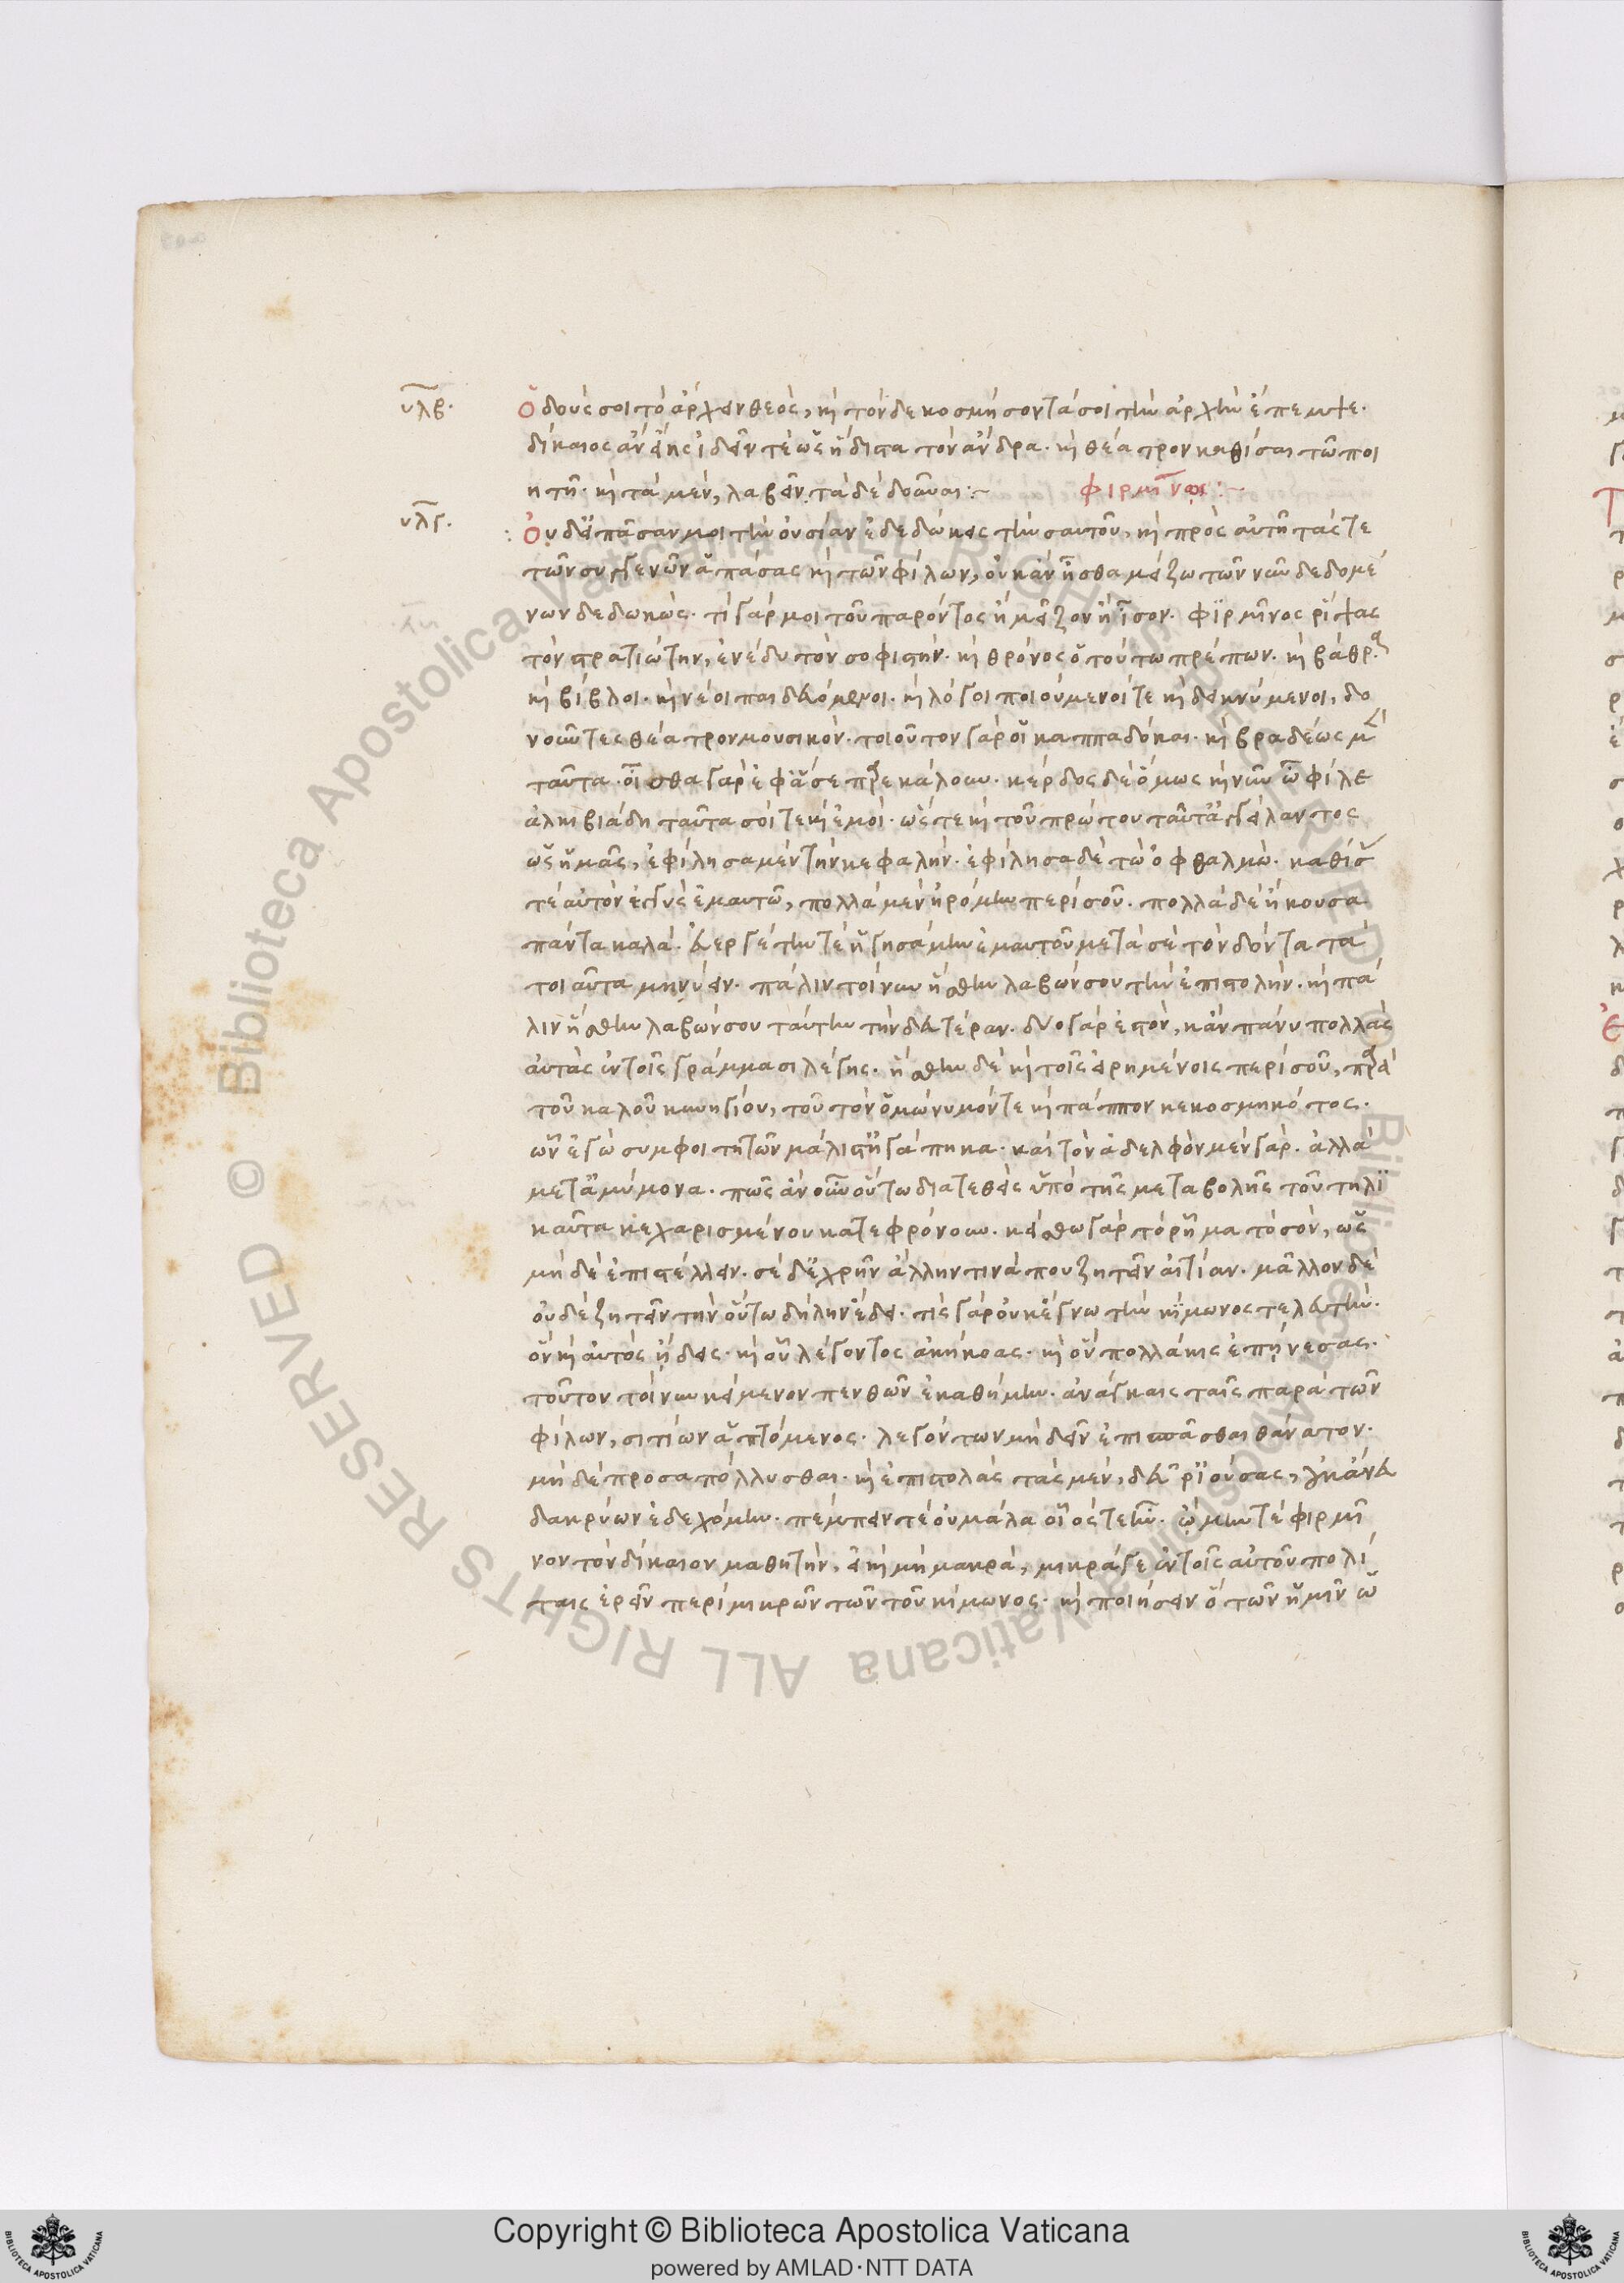 υλβ. Ὁ δοὺς σοι τὸ ἄρχειν θεὸς, καὶ τόνδε κοσμήσοντά σοι τὴν ἀρχὴν ἔπεμψε.
δίκαιος ἂν εἴης ἰδεῖν τὲ ὡς ἥδιστα τὸν ἄνδρα. καὶ θέατρον καθίσαι τῶ ποι
ητῆ. καὶ τὰ μὲν, λαβεῖν τὰ δὲ δοῦναι:~ φιρμίνω:~
υλγ. Οὐδ' εἰ πᾶσαν μοι τὴν οὐσίαν ἐδεδώκεις τὴν σαυτοῦ, καὶ πρὸς αὐτῆ τάς τε
τῶν συγγενῶν ἁπάσας καὶ τῶν φίλων, οὐκ ἂν ἦσθα μείζω τῶν νῦν δεδομέ
νων δεδωκώς. τί γάρ μοι τοῦ παρόντος ἢ μεῖζον ἢ ἴσον. φιρμῖνος ῥίψας
τὸν στρατιώτην, ἐνέδυ τὸν σοφιστήν. καὶ θρόνος ὁ τούτω πρέπων. καὶ βάθρα
καὶ βίβλοι. καὶ νέοι παιδευόμενοι. καὶ λόγοι ποιούμενοί τε καὶ δεικνύμενοι, δο
νοῦντες θέατρον μουσικόν. τοιοῦτον γὰρ οἱ καππαδόκαι. καὶ βραδέως μὲν
ταῦτα. οἶσθα γὰρ ἐφ' ἅ σε παρεκάλουν. κέρδος δὲ ὅμως καὶ νῦν ὦ φίλε
ἀλκιβιάδη ταῦτα σοί τε καὶ ἐμοί. ὥστε καὶ τοῦ πρώτου ταῦτα ἀγγείλαντος
ὡς ἡμᾶς, ἐφίλησα μὲν τὴν κεφαλήν. ἐφίλησα δὲ τὼ ὀφθαλμώ. καθίσας
τὲ αὐτὸν ἐγγὺς ἐμαυτῶ, πολλὰ μὲν ἠρόμην περὶ σοῦ. πολλὰ δὲ ἤκουσα
πάντα καλά. εὐεργέτην τὲ ἡγησάμην ἐμαυτοῦ μετὰ σὲ τὸν δόντα τὰ
τοιαῦτα μηνύειν. πάλιν τοίνυν ἥσθην λαβὼν σου τὴν ἐπιστολήν. καὶ πά
λιν ἥσθην λαβὼν σου ταύτην τὴν δευτέραν. δύο γὰρ ἐστὸν, κἂν πάνυ πολλὰς
αὐτὰς ἐν τοῖς γράμμασι λέγης. ἥσθην δὲ καὶ τοῖς εἰρημένοις περὶ σοῦ, παρὰ
τοῦ καλοῦ κυνηγίου, τοῦ τὸν ὁμώνυμόν τε καὶ πάππον κεκοσμηκότος.
ὧν ἐγὼ συμφοιτητῶν μάλιστ' ἠγάπηκα. καὶ τὸν ἀδελφὸν μὲν γὰρ. ἀλλὰ
μετ' ἀμύμονα. πῶς ἂν οὖν οὕτω διατεθεὶς ὑπὸ τῆς μεταβολῆς τοῦ τηλι
καῦτα κεχαρισμένου κατεφρόνουν. κείσθω γὰρ τὸ ῥῆμα τὸ σὸν, ὡς
μὴ δὲ ἐπιστέλλειν. σὲ δ' ἐχρῆν ἄλλην τινά που ζητεῖν αἰτίαν. μᾶλλον δὲ
οὐδὲ ζητεῖν τὴν οὕτω δήλην εἴδει. τίς γὰρ οὐκ ἔγνω τὴν κίμωνος τελευτήν.
ὃν καὶ αὐτὸς ἤδεις. καὶ οὗ λέγοντος ἀκήκοας. καὶ ὃν πολλάκις ἐπήνεσας.
τοῦτον τοίνυν κείμενον πενθῶν ἐκαθήμην. ἀνάγκαις ταῖς παρὰ τῶν
φίλων, σιτίων ἁπτόμενος. λεγόντων μὴ δεῖν ἐπισπᾶσθαι θάνατον.
μὴ δὲ προσαπόλλυσθαι. καὶ ἐπιστολὰς τὰς μὲν, δεῦρ' ἰούσας, οὐκ ἄνευ
δακρύων ἐδεχόμην. πέμπειν τὲ οὐ μάλα οἷός τε ἦν. ᾤμην τέ φιρμῖ
νον τὸν δίκαιον μαθητὴν, εἰ καὶ μὴ μακρὰ, μικρά γε ἐν τοῖς αὐτοῦ πολί
ταις ἐρεῖν περὶ μικρῶν τῶν τοῦ κίμωνος. καὶ ποιήσειν ὃ τῶν ἡμῖν ὡ
Copyright © Biblioteca Apostolica Vaticana
powered by AMLAD·NTT DATA